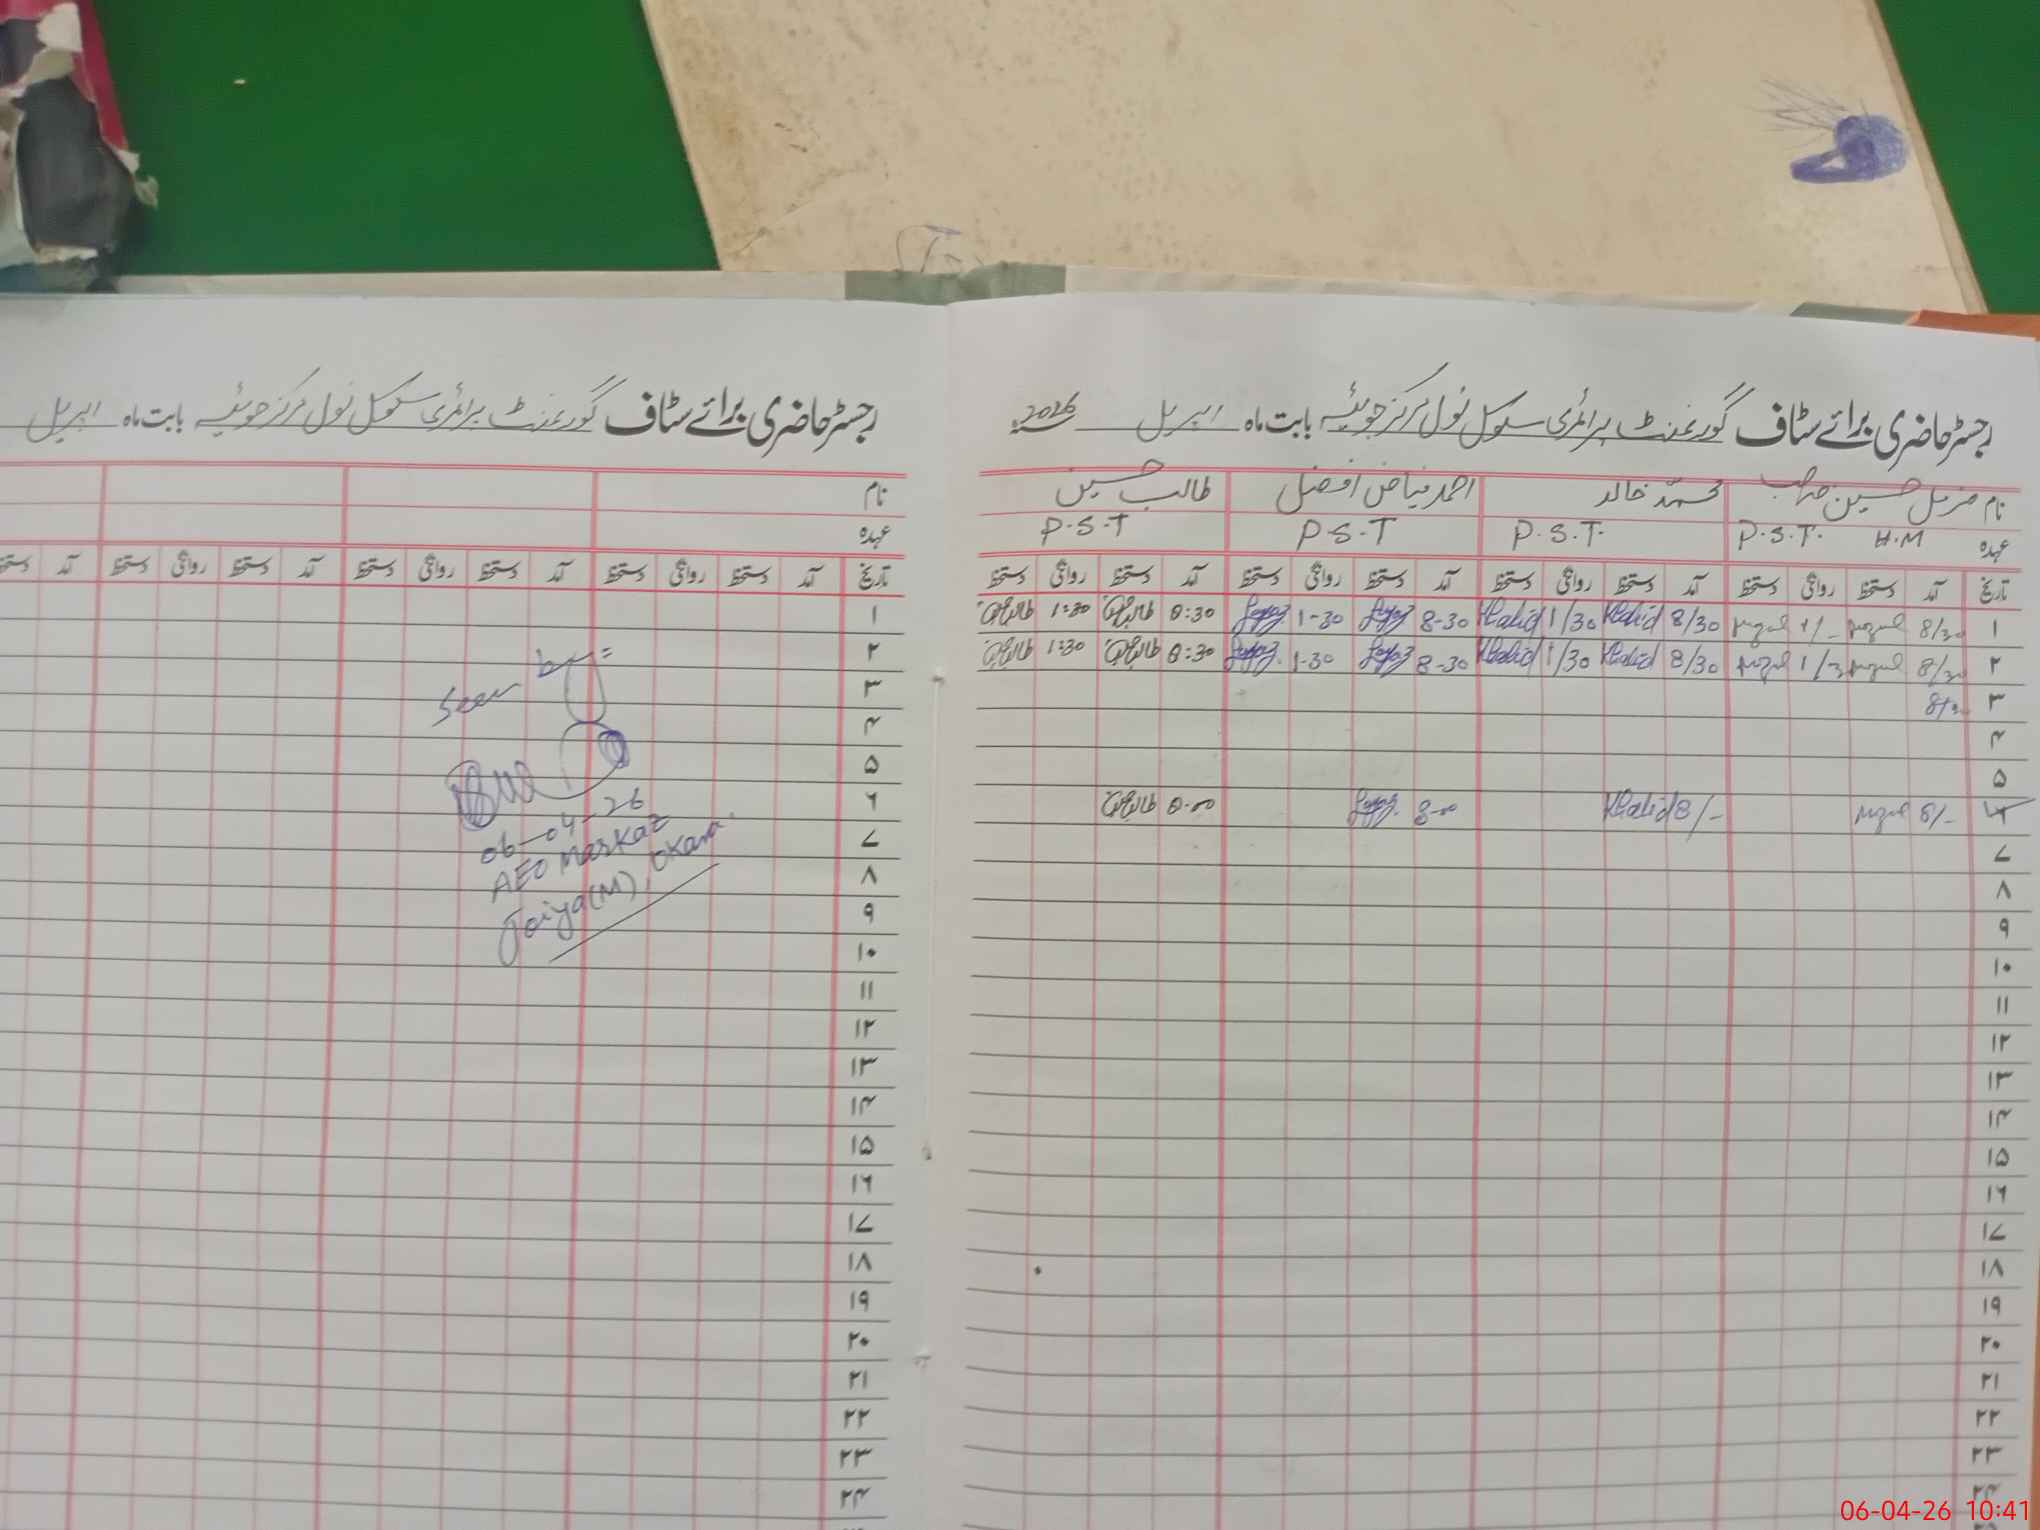 رجسٹر حاضری برائے سٹاف گورنمنٹ پرائمری سکول نول مرکز جوئیہ بابت ماہ اپریل 2026
نام مزمل حسین صاحب محمد خالد احمد فیاض افضل طالب حسین
عہدہ H.M P.S.T. P.S.T. P.S.T P.S.T
تاریخ آمد دستخط روانگی دستخط آمد دستخط روانگی دستخط آمد دستخط روانگی دستخط آمد دستخط روانگی دستخط
۱ 8/30 1/- 8/30 Khalid 1/30 Khalid 8-30 1-30 8:30 1:30
۲ 8/30 1/3 8/30 Khalid 1/30 Khalid 8-30 1-30 8:30 1:30
۳ 8/30
۴
۵
۶ 8/- 8/- Khalid 8-00 8-00
۷
۸
۹
۱۰
۱۱
۱۲
۱۳
۱۴
۱۵
۱۶
۱۷
۱۸
۱۹
۲۰
۲۱
۲۲
۲۳
۲۴
رجسٹر حاضری برائے سٹاف گورنمنٹ پرائمری سکول نول مرکز جوئیہ بابت ماہ اپریل
نام
عہدہ
تاریخ آمد دستخط روانگی دستخط آمد دستخط روانگی دستخط آمد دستخط روانگی دستخط آمد دستخط
۱
۲
۳
۴
۵
۶
۷
۸
۹
۱۰
۱۱
۱۲
۱۳
۱۴
۱۵
۱۶
۱۷
۱۸
۱۹
۲۰
۲۱
۲۲
۲۳
۲۴
Seen by:
06-04-26
AEO Markaz
Joiya(M), Okara.
06-04-26 10:41